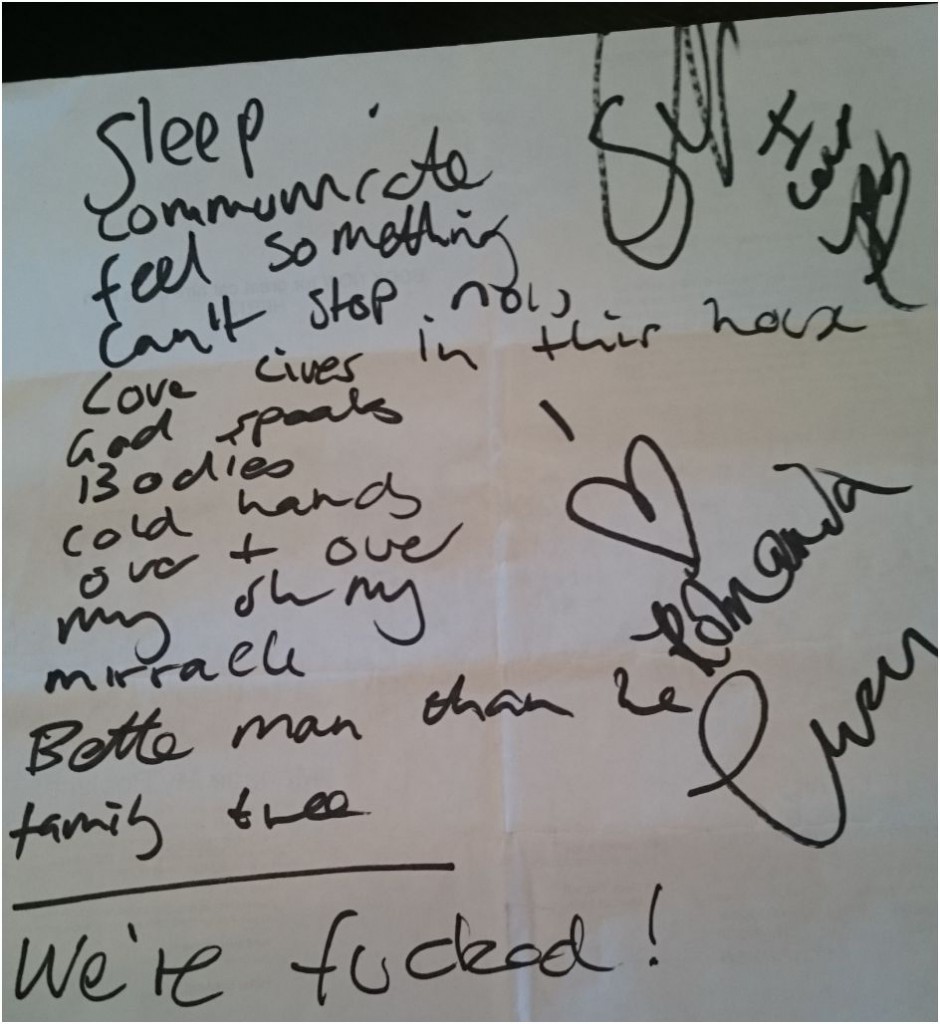 Sleep
Communicate
feel something
Can't stop now
Love lives in this house
God speaks
Bodies
cold hands
over + over
my shiny
miracle
Better man than he
family tree
We're fucked!